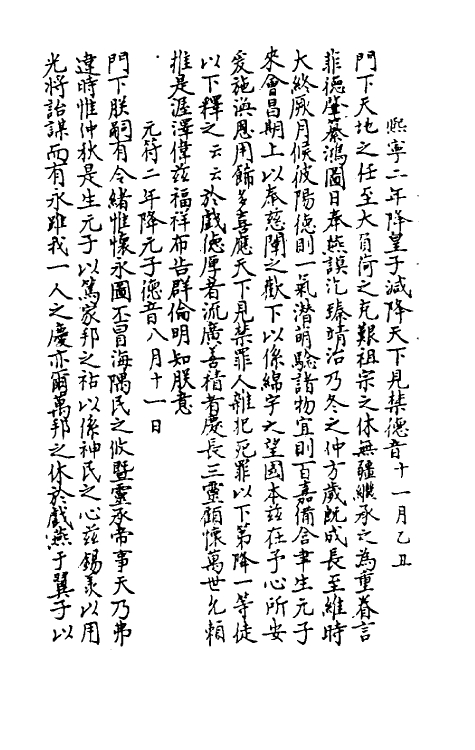 熙寧二年降皇子減降天下見禁德音十一月乙丑
門下天地之任至大負荷之克艱祖宗之休無疆繼承之為重眷言
菲德肇纂鴻圖日奉燕謨汔臻靖治乃冬之仲方歲既成長至維時
大終厥月候彼陽德則一氣潛萌驗諸物宜則百嘉備合聿生元子
來會昌期上以奉慈闈之歡下以係綿宇之望國本茲在予心所安
爰施渙恩用飾多喜應天下見禁罪人雜犯死罪以下第降一等徒
以下釋之云云於戲德厚者流廣善積者慶長三靈顧懷萬世允賴
推是渥澤偉茲福祥布告群倫明知朕意
元符二年降元子德音八月十一日
門下朕嗣有令緒惟懷永圖丕冒海隅民之攸暨靈承帝事天乃弗
違時惟仲秋是生元子以篤家邦之祜以係神民之心茲錫羨以用
光將詒謀而有永雖我一人之慶亦爾萬邦之休於戲燕子翼子以